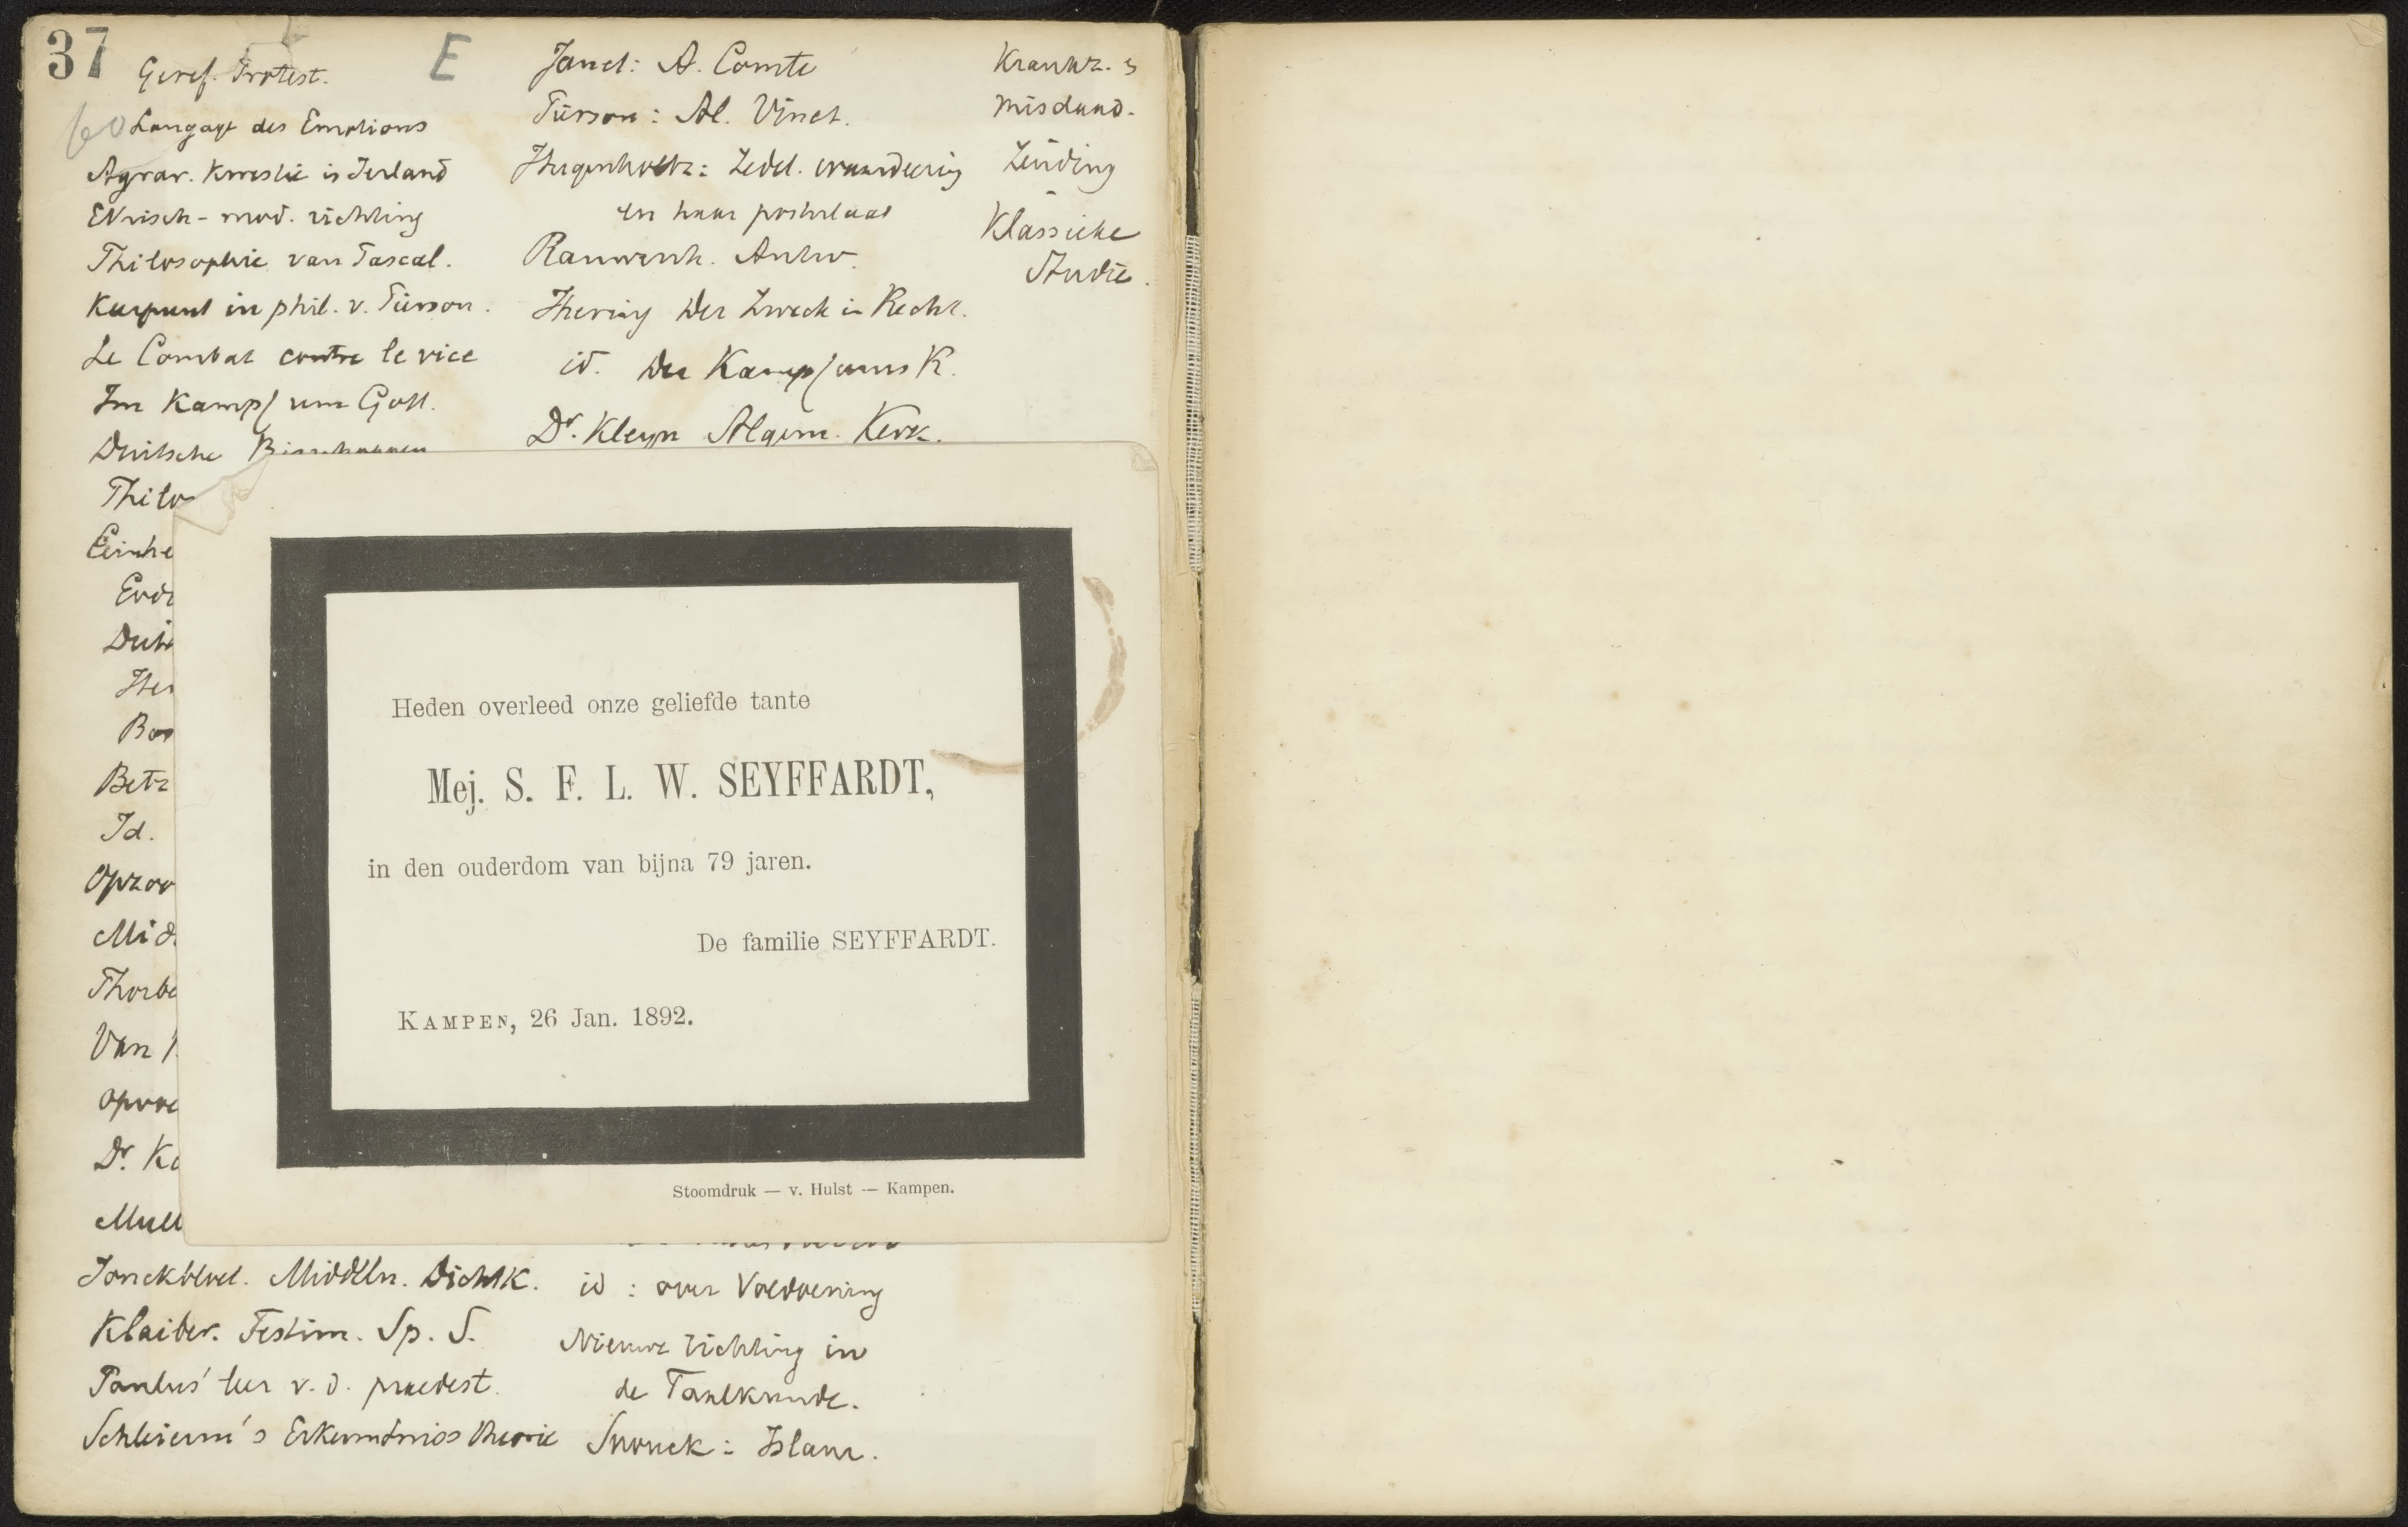 37
E
Geref. Protest.
Langage des Emotions
Agrar. Kwestie in Ierland
Ethisch-mod. richting
Philosophie van Pascal.
Keerpunt in phil. v. Pierson.
Le Combat contre le vice
Im Kampf um Gott.
Duitsche
Philo
Einhe
Id.
Opzoo
Mid.
Thorbe
Van
Dr. Ko
Mull
Jonckbloet. Middeln. Dichtk.
Klaiber. Testim. Sp. S.
Paulus' leer v. d. praedest.
Schleierm's Erkenntniss theorie
Janet: A. Comte
Pierson: Al. Vinet.
Hugenholtz: Zedel. waardeering
en haar postulaat
Rauwenh. Antw.
Ihering Der Zweck in Recht.
id. Der Kampf ums R.
Dr. Kleyn Algem. Kerk.
id: over Voldoening
Nieuwe richting in
de Taalkunde.
Snouck: Islam.
Krankz.
misdaad.
Zending
Klassieke
Studie.
Heden overleed onze geliefde tante
Mej. S. F. L. W. SEYFFARDT,
in den ouderdom van bijna 79 jaren.
De familie SEYFFARDT.
KAMPEN, 26 Jan. 1892.
Stoomdruk — v. Hulst — Kampen.